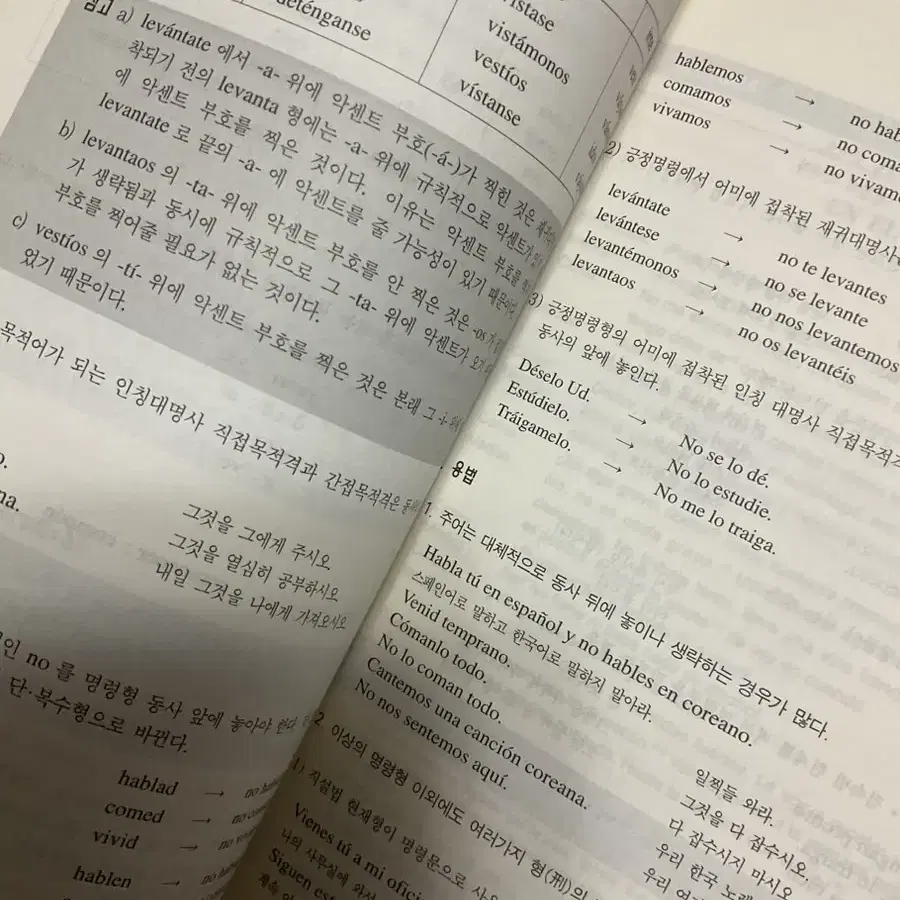 deténganse
vístase
vistámonos
vestíos
vístanse
참고 a) levántate 에서 -a- 위에 악센트 부호(-á-)가 찍힌 것은
착되기 전의 levanta 형에는 -a- 위에 규칙적으로 악센트가
에 악센트 부호를 찍은 것이다. 이유는 악센트 부호를
levantate 로 끝의 -a- 에 악센트를 줄 가능성이 있기 때문이다.
b) levantaos 의 -ta- 위에 악센트 부호를 안 찍은 것은 -os 가
가 생략됨과 동시에 규칙적으로 그 -ta- 위에 악센트가 오기
부호를 찍어줄 필요가 없는 것이다.
c) vestíos 의 -tí- 위에 악센트 부호를 찍은 것은 본래 그 -i-
었기 때문이다.
목적어가 되는 인칭대명사 직접목적격과 간접목적격은
그것을 그에게 주시오
그것을 열심히 공부하시오
내일 그것을 나에게 가져오시오
인 no 를 명령형 동사 앞에 놓아야 한다
단·복수형으로 바뀐다.
hablad →
comed →
vivid →
hablen →
hablemos →
comamos → no
vivamos → no vivamos
2) 긍정명령에서 어미에 접착된 재귀대명사
levántate → no te levantes
levántese → no se levante
levantémonos → no nos levantemos
levantaos → no os levantéis
3) 긍정명령형의 어미에 접착된 인칭 대명사 직접목적격
동사의 앞에 놓인다.
Déselo Ud. → No se lo dé.
Estúdielo. → No lo estudie.
Tráigamelo. → No me lo traiga.
용법
1. 주어는 대체적으로 동사 뒤에 놓이나 생략하는 경우가 많다.
Habla tú en español y no hables en coreano.
스페인어로 말하고 한국어로 말하지 말아라.
Venid temprano. 일찍들 와라.
Cómanlo todo. 그것을 다 잡수시오.
No lo coman todo. 다 잡수시지 마시오
Cantemos una canción coreana. 우리 한국 노래
No nos sentemos aquí. 우리
2 이상의 명령형 이외에도 여러가지 형(刑)의
1) 직설법 현재형이 명령문으로
Vienes tú a mi
나의 사무실에
Siguen
계속